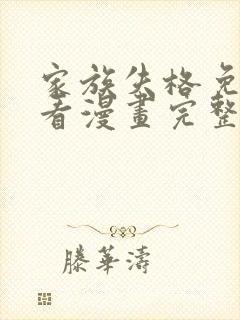 家族失格免
看漫畫完整
滕華濤